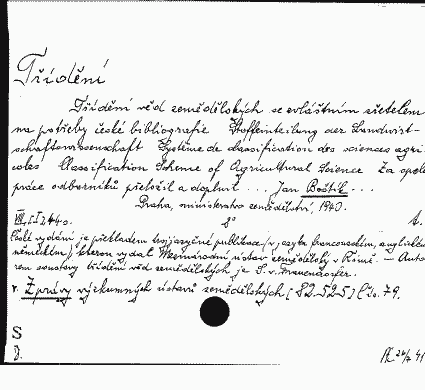 Třídění
Třídění věd zemědělských se zvláštním zřetelem
na potřeby české bibliografie Stoffeinteilung der Landwirt-
schaftswissenschaft Système de classification des sciences agri
coles Classification Scheme of Agricultural Science Za spolu
práce odborníků přeložil a doplnil ... Jan Boštík ...
Praha, ministerstvo zemědělství, 1940.
8° t.
České vydání je překladem trojjazyčné publikace /v jazyku francouzském, anglickém
německém/, kterou vydal Mezinárodní ústav zemědělský v Římě. — Auto
rem soustavy třídění věd zemědělských je S. v. Frauendorfer.
v. Zprávy výzkumných ústavů zemědělských [82.525] Čís. 79.
S